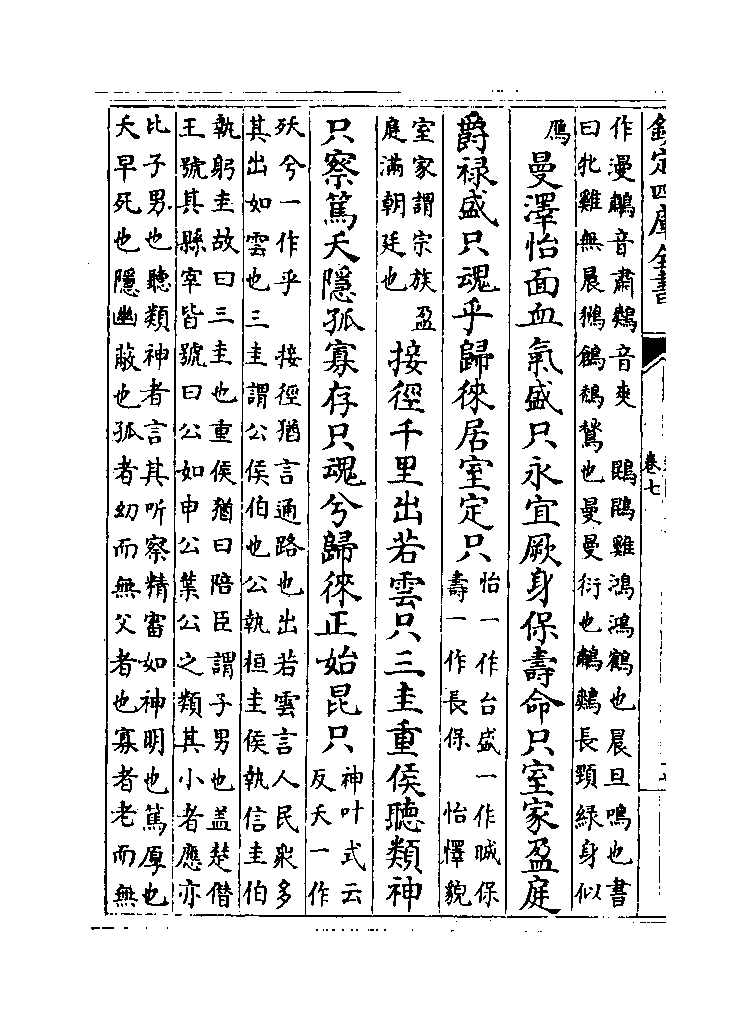 欽定四庫全書
卷七
作漫鷫音肅鷞音爽 鵾鵾雞鴻鴻鶴也晨旦鳴也書
曰牝雞無晨鶬鵚鶖也曼曼衍也鷫鷞長頸緑身似
鴈
曼澤怡面血氣盛只永宜厥身保壽命只室家盈庭
爵禄盛只魂乎歸徠居室定只
怡一作台盛一作晠保
壽一作長保 怡懌貌
室家謂宗族盈
庭滿朝廷也
接徑千里出若雲只三圭重侯聽類神
只察篤夭隱孤寡存只魂兮歸徠正始昆只
神叶式云
反夭一作
殀兮一作乎 接徑猶言通路也出若雲言人民衆多
其出如雲也三圭謂公侯伯也公執桓圭侯執信圭伯
執躬圭故曰三圭也重侯猶曰陪臣謂子男也盖楚僭
王號其縣宰皆號曰公如申公葉公之類其小者應亦
比子男也聽類神者言其听察精審如神明也篤厚也
夭早死也隱幽蔽也孤者幼而無父者也寡者老而無